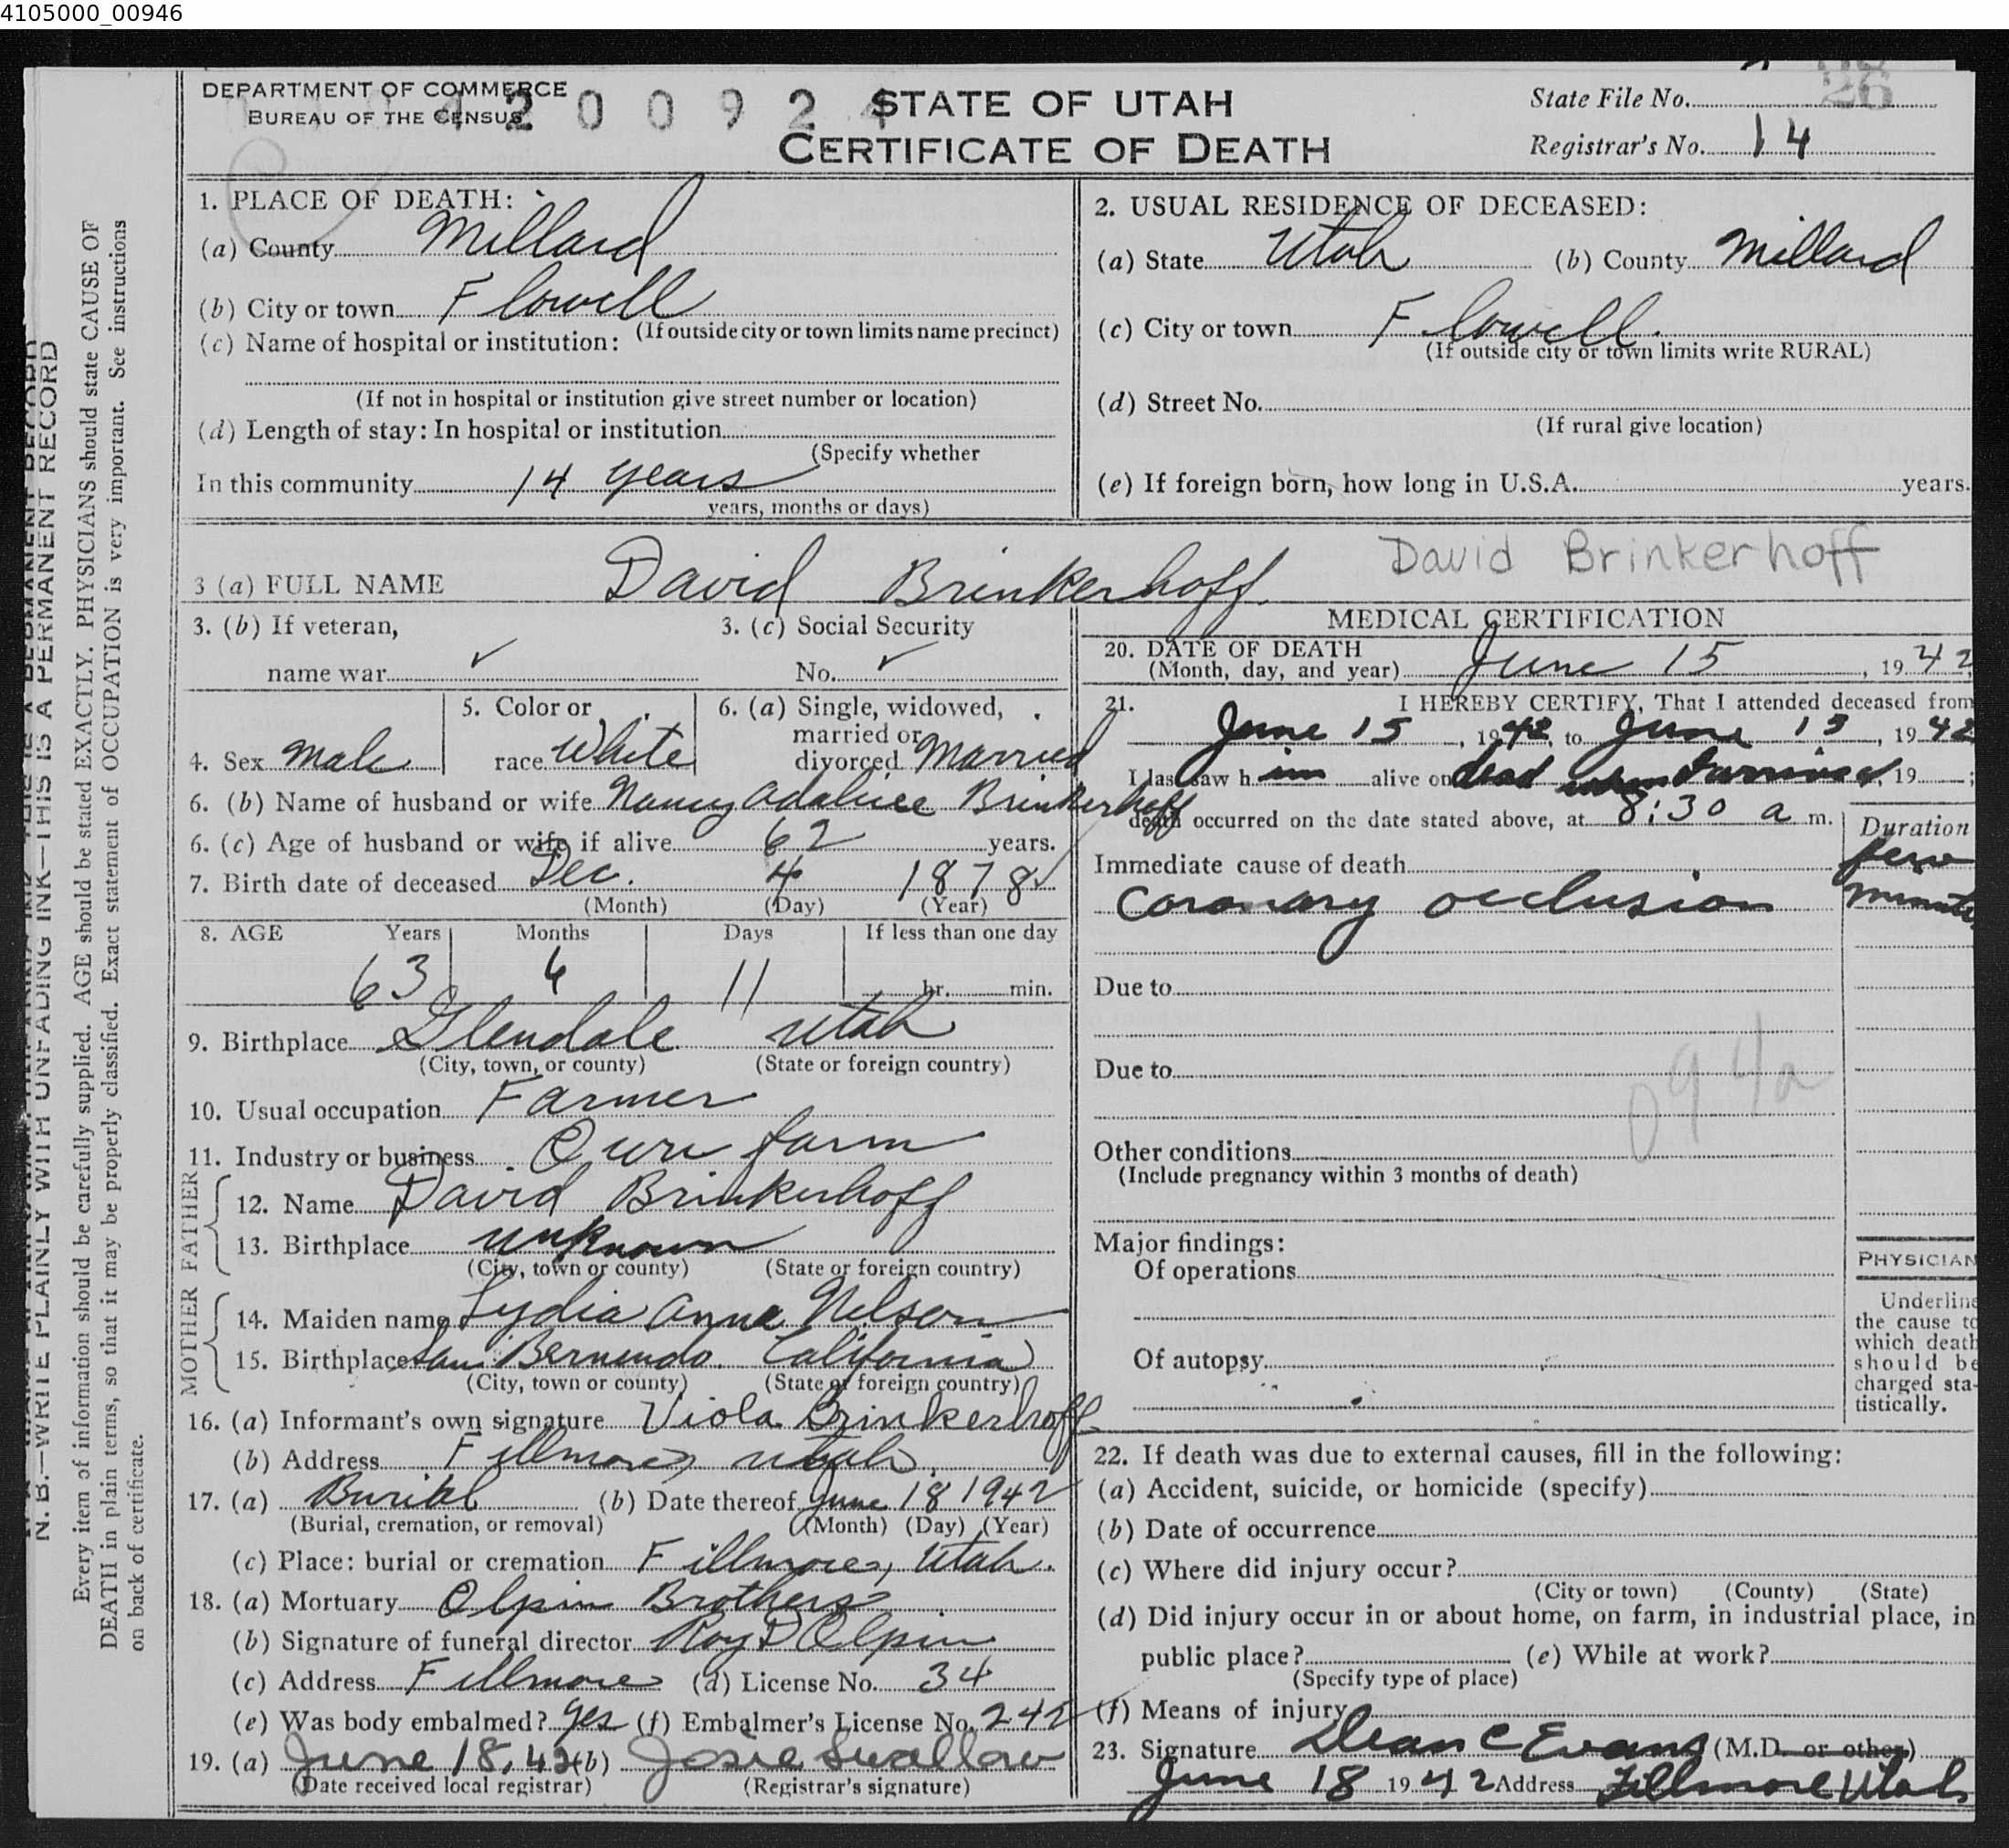 4105000_00946
DEPARTMENT OF COMMERCE
BUREAU OF THE CENSUS
4200924
STATE OF UTAH
CERTIFICATE OF DEATH
State File No. 26
Registrar's No. 14
1. PLACE OF DEATH:
(a) County Millard
(b) City or town Flowell
(If outside city or town limits name precinct)
(c) Name of hospital or institution:
(If not in hospital or institution give street number or location)
(d) Length of stay: In hospital or institution
(Specify whether
In this community 14 years
years, months or days)
2. USUAL RESIDENCE OF DECEASED:
(a) State Utah (b) County Millard
(c) City or town Flowell.
(If outside city or town limits write RURAL)
(d) Street No.
(If rural give location)
(e) If foreign born, how long in U.S.A. years.
3 (a) FULL NAME David Brinkerhoff
David Brinkerhoff
3. (b) If veteran,
name war ✓
3. (c) Social Security
No. ✓
4. Sex Male
5. Color or
race White
6. (a) Single, widowed,
married or
divorced Married
6. (b) Name of husband or wife Nancy Adaliee Brinkerhoff
6. (c) Age of husband or wife if alive 62 years.
7. Birth date of deceased Dec. 4 1878 ✓
(Month) (Day) (Year)
8. AGE Years Months Days If less than one day
63 6 11 hr. min.
9. Birthplace Glendale Utah
(City, town, or county) (State or foreign country)
10. Usual occupation Farmer
11. Industry or business Own farm
FATHER
12. Name David Brinkerhoff
13. Birthplace unknown
(City, town or county) (State or foreign country)
MOTHER
14. Maiden name Lydia Anna Nelson
15. Birthplace San Bernendo. California
(City, town or county) (State or foreign country)
16. (a) Informant's own signature Viola Brinkerhoff
(b) Address Fillmore, Utah.
17. (a) Burial (b) Date thereof June 18 1942
(Burial, cremation, or removal) (Month) (Day) (Year)
(c) Place: burial or cremation Fillmore, Utah.
18. (a) Mortuary Olpin Brothers
(b) Signature of funeral director Roy D Olpin
(c) Address Fillmore (d) License No. 34
(e) Was body embalmed? Yes (f) Embalmer's License No. 242
19. (a) June 18, 42 (b) Josie Swallow
(Date received local registrar) (Registrar's signature)
MEDICAL CERTIFICATION
20. DATE OF DEATH
(Month, day, and year) June 15, 1942
21. I HEREBY CERTIFY, That I attended deceased from
June 15, 1942, to June 15, 1942
I last saw him alive on dead when I arrived, 19 ;
death occurred on the date stated above, at 8:30 a m.
Duration
Immediate cause of death few
Coronary occlusion minutes
Due to
Due to
094a
Other conditions
(Include pregnancy within 3 months of death)
Major findings:
Of operations
Of autopsy
PHYSICIAN
Underline
the cause to
which death
should be
charged sta-
tistically.
22. If death was due to external causes, fill in the following:
(a) Accident, suicide, or homicide (specify)
(b) Date of occurrence
(c) Where did injury occur?
(City or town) (County) (State)
(d) Did injury occur in or about home, on farm, in industrial place, in
public place? (e) While at work?
(Specify type of place)
(f) Means of injury
23. Signature Dean C Evans (M.D. or other)
June 18 1942 Address Fillmore Utah
N. B.—WRITE PLAINLY WITH UNFADING INK—THIS IS A PERMANENT RECORD
Every item of information should be carefully supplied. AGE should be stated EXACTLY. PHYSICIANS should state CAUSE OF
DEATH in plain terms, so that it may be properly classified. Exact statement of OCCUPATION is very important. See instructions
on back of certificate.